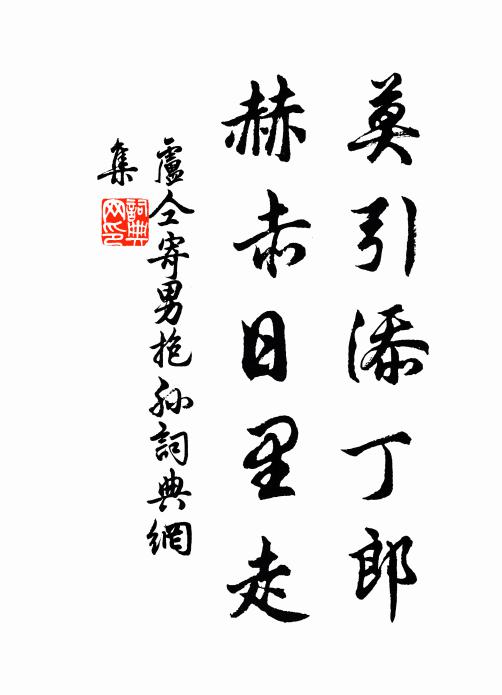 莫引添丁郎
赫赤日里走
盧仝寄男抱孫詞典網
集
詞典
网印